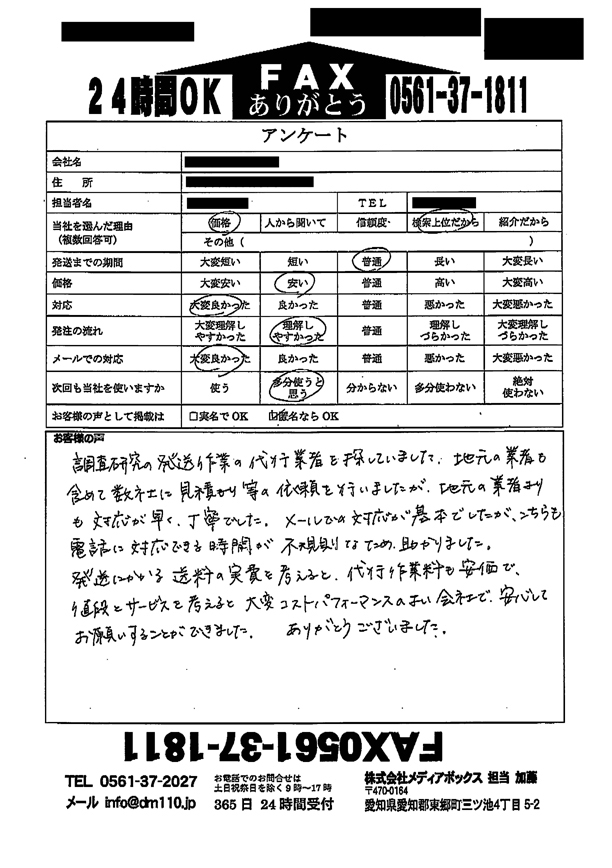 24時間OK
FAX
ありがとう
0561-37-1811
アンケート
会社名
住 所
担当者名 TEL
当社を選んだ理由 価格 人から聞いて 信頼度 検索上位だから 紹介だから
(複数回答可) その他 ( )
発送までの期間 大変短い 短い 普通 長い 大変長い
価格 大変安い 安い 普通 高い 大変高い
対応 大変良かった 良かった 普通 悪かった 大変悪かった
発注の流れ 大変理解しやすかった 理解しやすかった 普通 理解しづらかった 大変理解しづらかった
メールでの対応 大変良かった 良かった 普通 悪かった 大変悪かった
次回も当社を使いますか 使う 多分使うと思う 分からない 多分使わない 絶対使わない
お客様の声として掲載は □実名でOK ☑匿名ならOK
お客様の声
調査研究の発送作業の代行業者を探していました。地元の業者も
含めて数社に見積もり等の依頼を行いましたが、地元の業者より
も対応が早く、丁寧でした。メールでの対応が基本でしたが、こちらも
電話に対応できる時間が不規則なため、助かりました。
発送にかかる送料の実費を考えると、代行作業料も安価で、
値段とサービスを考えると大変コストパフォーマンスのよい会社で、安心して
お願いすることができました。 ありがとうございました。
FAX0561-37-1811
TEL 0561-37-2027
メール info@dm110.jp
お電話でのお問合せは
土日祝祭日を除く9時～17時
365日24時間受付
株式会社メディアボックス 担当 加藤
〒470-0164
愛知県愛知郡東郷町三ツ池4丁目5-2